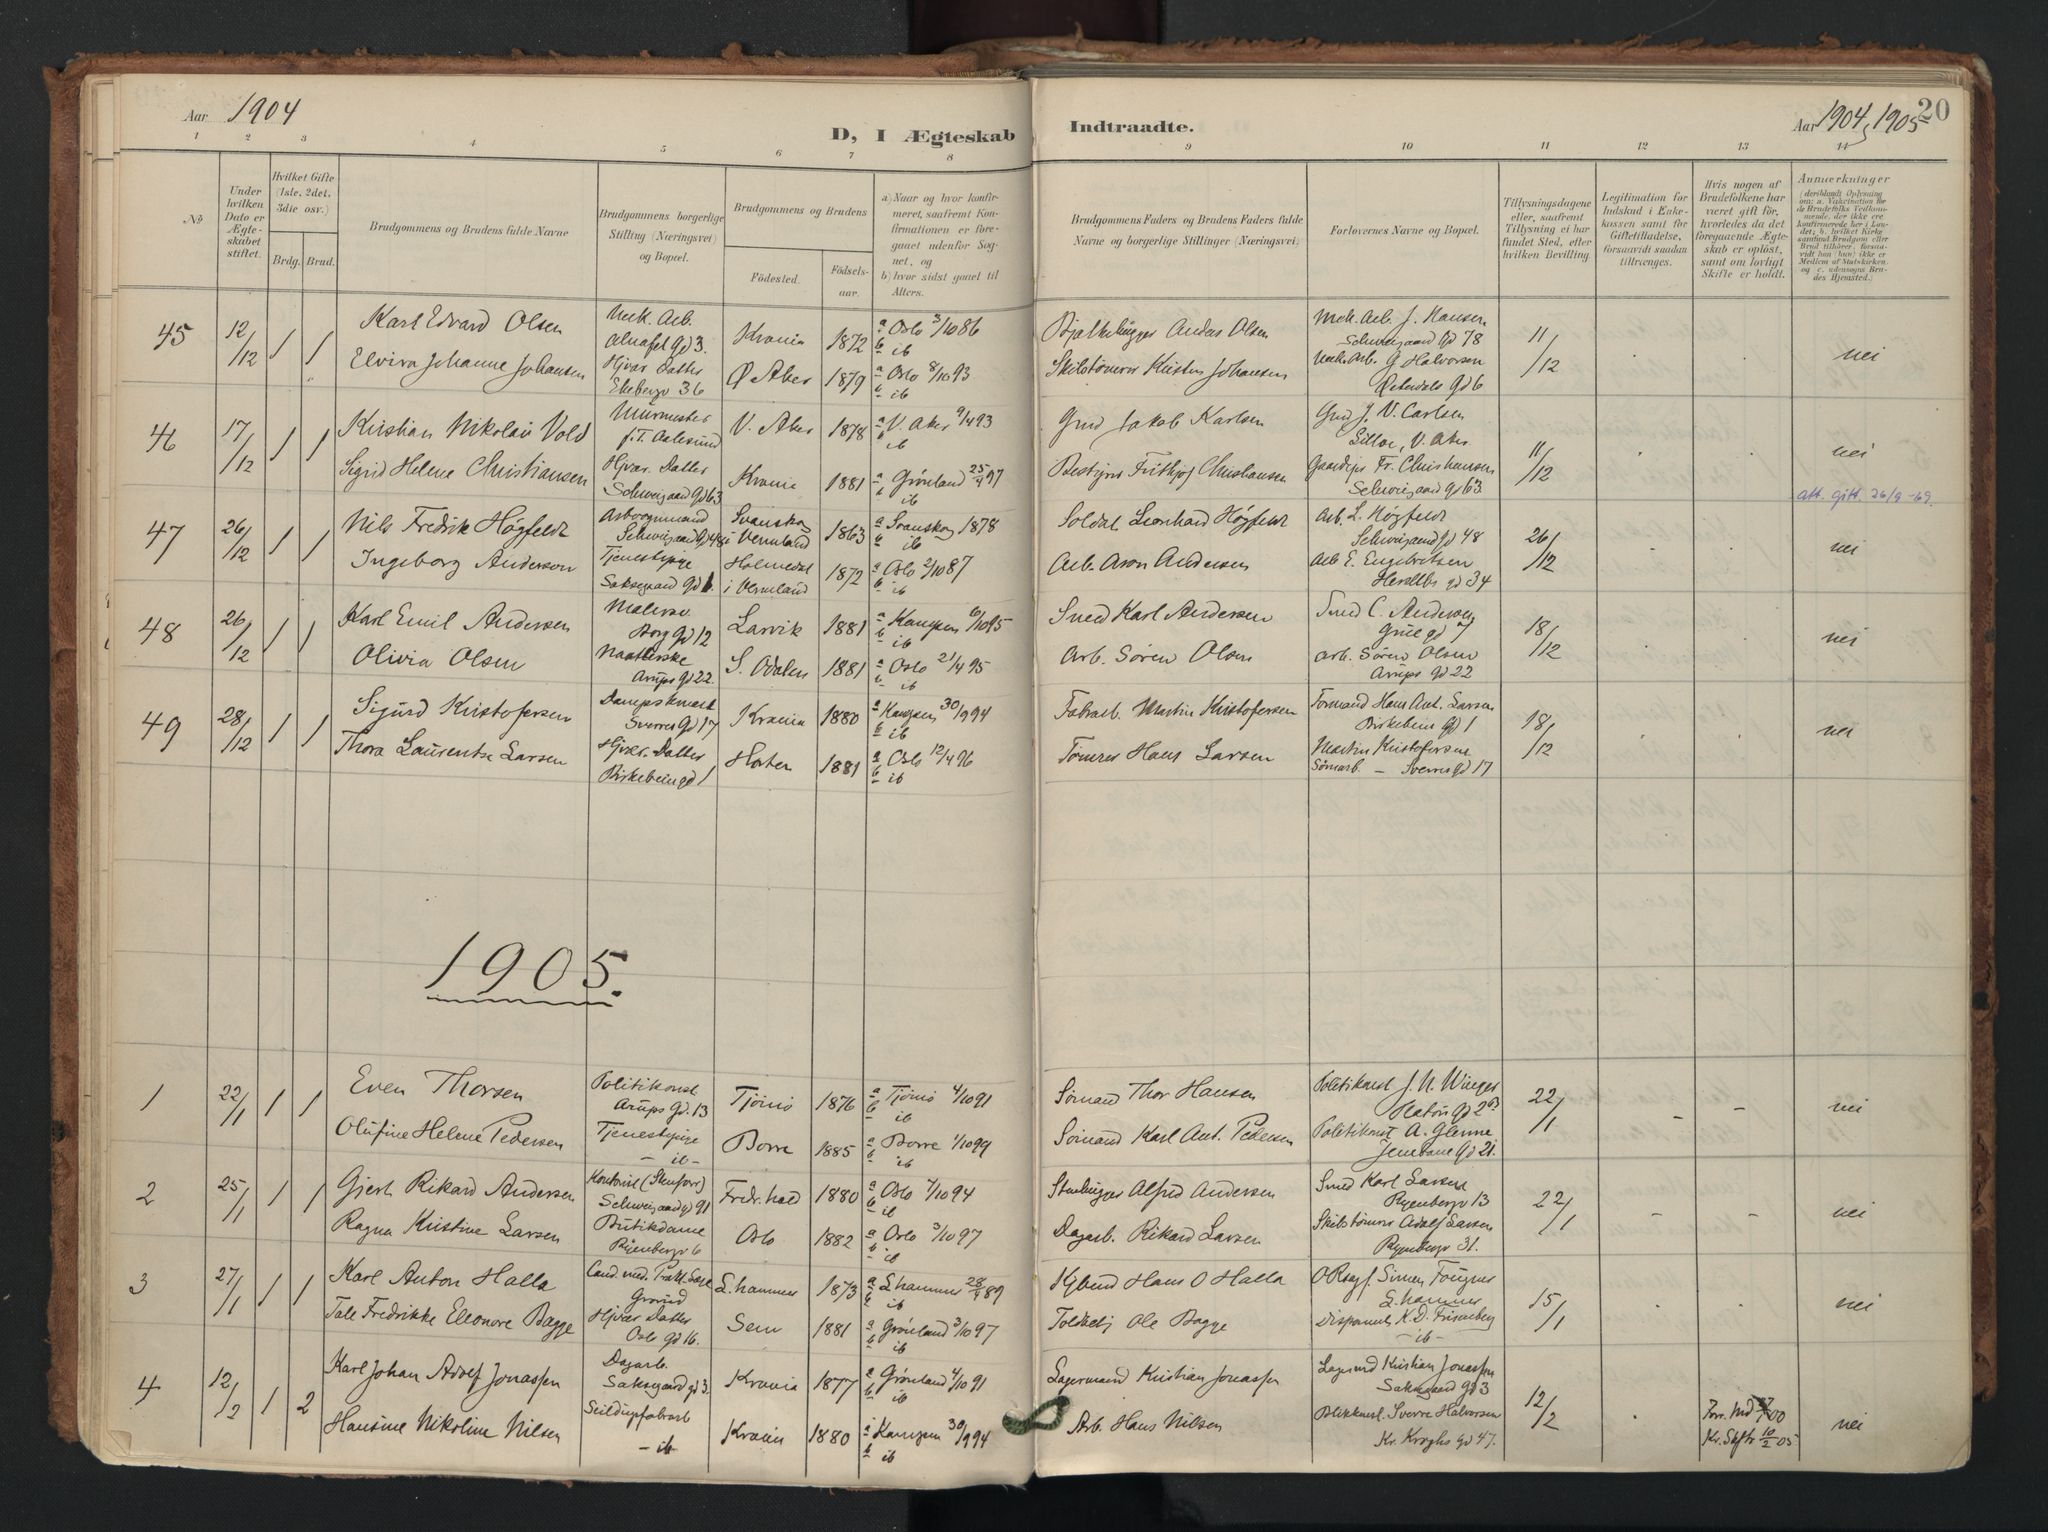 Aar 1904
D, I Ægteskab
Indtraadte.
Aar 1904, 1905
20
1 2 3 4 5 6 7 8 9 10 11 12 13 14
No
Under hvilken Dato er Ægteskabet stiftet.
Hvilket Gifte (1ste, 2det, 3die osv.)
Brdg. Brud.
Brudgommens og Brudens fulde Navne
Brudgommens borgerlige Stilling (Næringsvei) og Bopæl.
Brudgommens og Brudens
Fødested. Fødselsaar.
a) Naar og hvor konfirmeret, saafremt Konfirmationen er foregaaet udenfor Sognet, og
b) hvor sidst gaaet til Alters.
Brudgommens Faders og Brudens Faders fulde Navne og borgerlige Stillinger (Næringsvei)
Forlovernes Navne og Bopæl.
Tillysningsdagene eller, saafremt Tillysning ei har fundet Sted, efter hvilken Bevilling.
Legitimation for Indskud i Enkekassen samt for Giftetilladelse, forsaavidt saadan tiltrænges.
Hvis nogen af Brudefolkene har været gift før, hvorledes da det foregaaende Ægteskab er opløst, samt om lovligt Skifte er holdt.
Anmærkninger
(deriblandt Oplysning om: a. Vakcination for de Brudefolks Vedkommende, der ikke ere konfirmerede her i Landet; b. hvilket Kirkesamfund Brudgom eller Brud tilhører, forsaavidt han (hun) ikke er Medlem af Statskirken, og c. udensogns Brudes Hjemsted.)
45 12/12 1 1 Karl Edvard Olsen Mek. Arb. Kravia 1872 a Oslo 3/10 86 Anders Olsen Mek. Arb. J. Hansen 11/12 nei
b ib Schweigaard gd 78
Elvira Johanne Johansen Hjvær. Datter Ø Aker 1879 a Oslo 8/10 93 Kristen Johansen Mek. Arb. G Halvorsen
Ekebergv 36 b ib
46 17/12 1 1 Kristian Nikolai Vold Murmester V. Aker 1878 a V. Aker 9/4 93 Grd Jakob Karlsen Grd J. V. Carlsen 11/12 nei
f. T. Aalesund b ib V. Aker
Sigrid Helene Christiansen Hjvær. Datter Kravia 1881 a Grønland 25/4 97 Bestyrer Frithjof Christiansen Fr. Christiansen
Schweigaard gd 63 b ib Schweigaard gd 63
att. gift. 26/9-69.
47 26/12 1 1 Nils Fredrik Høgfeldt Svanskog i Vermland 1863 a Svanskog 1878 Soldat Leonhard Høgfeldt Arb. L. Høgfeldt 26/12 nei
Schweigaard gd 48 b ib Schweigaard gd 48
Ingeborg Anderson Tjenestepige Holmedal i Vermland 1872 a Oslo 2/10 87 Arb. Aron Andersen Arb E. Engebretsen
b ib gd 34
48 26/12 1 1 Karl Emil Andersen Malersv. Larvik 1881 a Kampen 6/10 95 Smed Karl Andersen Smed C. Andersen 18/12 nei
Borg gd 12 b ib gd 7
Olivia Olsen S. Odalen 1881 a Oslo 21/4 95 Arb. Søren Olsen Arb. Søren Olsen
Arups gd 22 b ib Arups gd 22
49 28/12 1 1 Sigurd Kristofersen Kravia 1880 a Kampen 30/9 94 Fabrarb. Martin Kristofersen Formand Hans Ant. Larsen 18/12 nei
Sverres gd 17 b ib Birkebein gd 1
Thora Laurentse Larsen Hjvær. Datter Horten 1881 a Oslo 12/4 96 Tømrer Hans Larsen Martin Kristofersen
Birkebein gd 1 b ib Sverres gd 17
1905.
1 22/1 1 1 Even Thorsen Politikonst Tjømø 1876 a Tjømø 4/10 91 Sømand Thor Hansen Politikonst J. N. Winger 22/1 - - nei
Arups gd. 13 b ib
Olufine Helene Pedersen Tjenestepige Borre 1885 a Borre 1/10 99 Sømand Karl Ant. Pedersen Politikonst A. Glenne
- ib - b ib Jernbane gd 21.
2 25/1 1 1 Gjert Rikard Andersen Kontorist Fredr.hald 1880 a Oslo 7/10 94 Stenhugger Alfred Andersen Smed Karl Larsen 22/1 - - nei
Schweigaard gd 91 b ib Ryenbergv 13
Ragna Kristine Larsen Butikdame Oslo 1882 a Oslo 3/10 97 Dagarb. Rikard Larsen Adolf Larsen
Ryenbergv 6 b ib Ryenbergv 31.
3 27/1 1 1 Karl Anton Halla Cand. med. Prakt. Læge L.hammer 1873 a L.hammer 28/4 89 Hans O Halla O.Rsagf. Simen Fougner 15/1 nei
b ib L.hammer
Tale Fredrikke Eleonore Bagge Hjvær Datter Sem 1881 a Grønland 3/10 97 Toldbetj Ole Bagge
Oslo gd 16. b ib - ib -
4 12/2 1 2 Karl Johan Adolf Jonassen Dagarb. Kravia 1877 a Grønland 4/10 91 Lagermand Kristian Jonassen Lagermd Kristian Jonassen 12/2 nei
Saksegaard gd 3. b ib Saksegaard gd 3
Hansine Nikoline Nilsen Seildugsfabrarb Kravia 1880 a Kampen 30/9 94 Arb. Hans Nilsen Blikkensl. Sverre Halvorsen
- ib - b ib Kr. Kroghs gd 47. Kr. Skftr 10/2 05